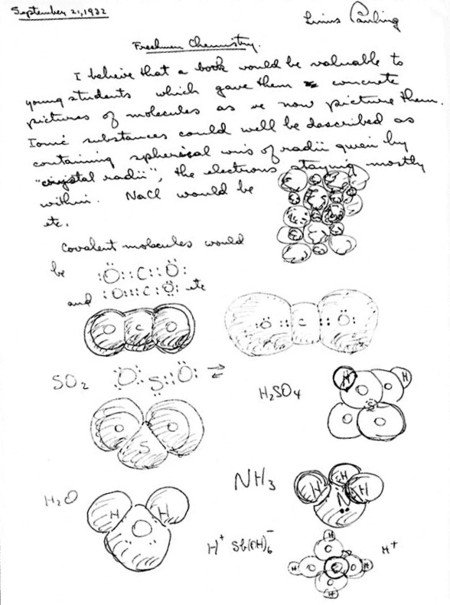 September 21, 1932 Linus Pauling
Freshman Chemistry.
I believe that a book would be valuable to
young students which gave them concrete
pictures of molecules as we now picture them.
Ionic substances could well be described as
containing spherical ions of radii given by
"crystal radii", the electrons staying mostly
within. NaCl would be
etc.
Covalent molecules would
be :Ö::C::Ö:
and :O:::C:Ö: etc
O C O
:Ö: C :Ö:
SO2 :Ö: S̈ ::Ö: ⇌
O S O
H2SO4 H H O O O
H2O H H O
NH3 H H H N
H+ Sb(OH)6- H+